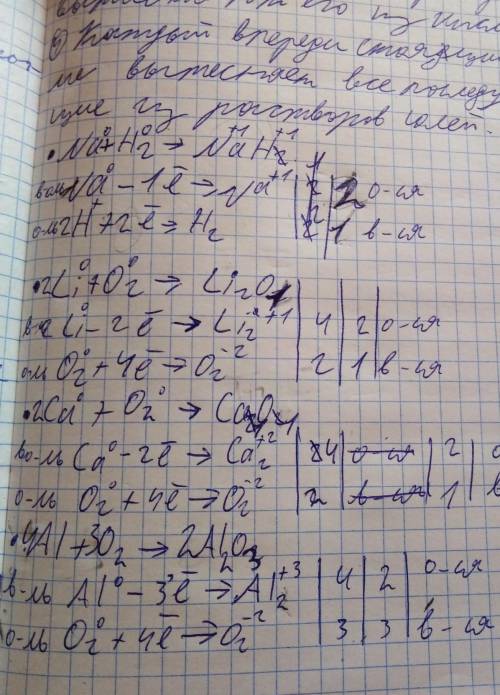 2) Каждый впереди стоящий
ме вытесняет все последу
щие из растворов солей.
• Na⁰ + H₂⁰ → Na⁺¹H⁺¹
в-ль Na⁰ – 1ē → Na⁺¹ | 2 | 2 о-ся
о-ль 2H⁺ + 2ē → H₂ | 2 | 1 в-ся
• 2Li⁰ + O₂⁰ → Li₂O
в-ль Li⁰ – 2ē → Li₂⁺¹ | 4 | 2 | о-ся
о-ль O₂⁰ + 4ē → O₂⁻² | 2 | 1 | в-ся
• 2Ca⁰ + O₂⁰ → CaO
во-ль Ca⁰ – 2ē → Ca₂⁺² | 4 | о-ся | 2 | о
о-ль O₂⁰ + 4ē → O₂⁻² | 2 | в-ся | 1 | в
• 4Al + 3O₂ → 2Al₂O₃
в-ль Al⁰ – 3ē → Al₂⁺³ | 4 | 2 | о-ся
о-ль O₂⁰ + 4ē → O₂⁻² | 3 | 3 | в-ся